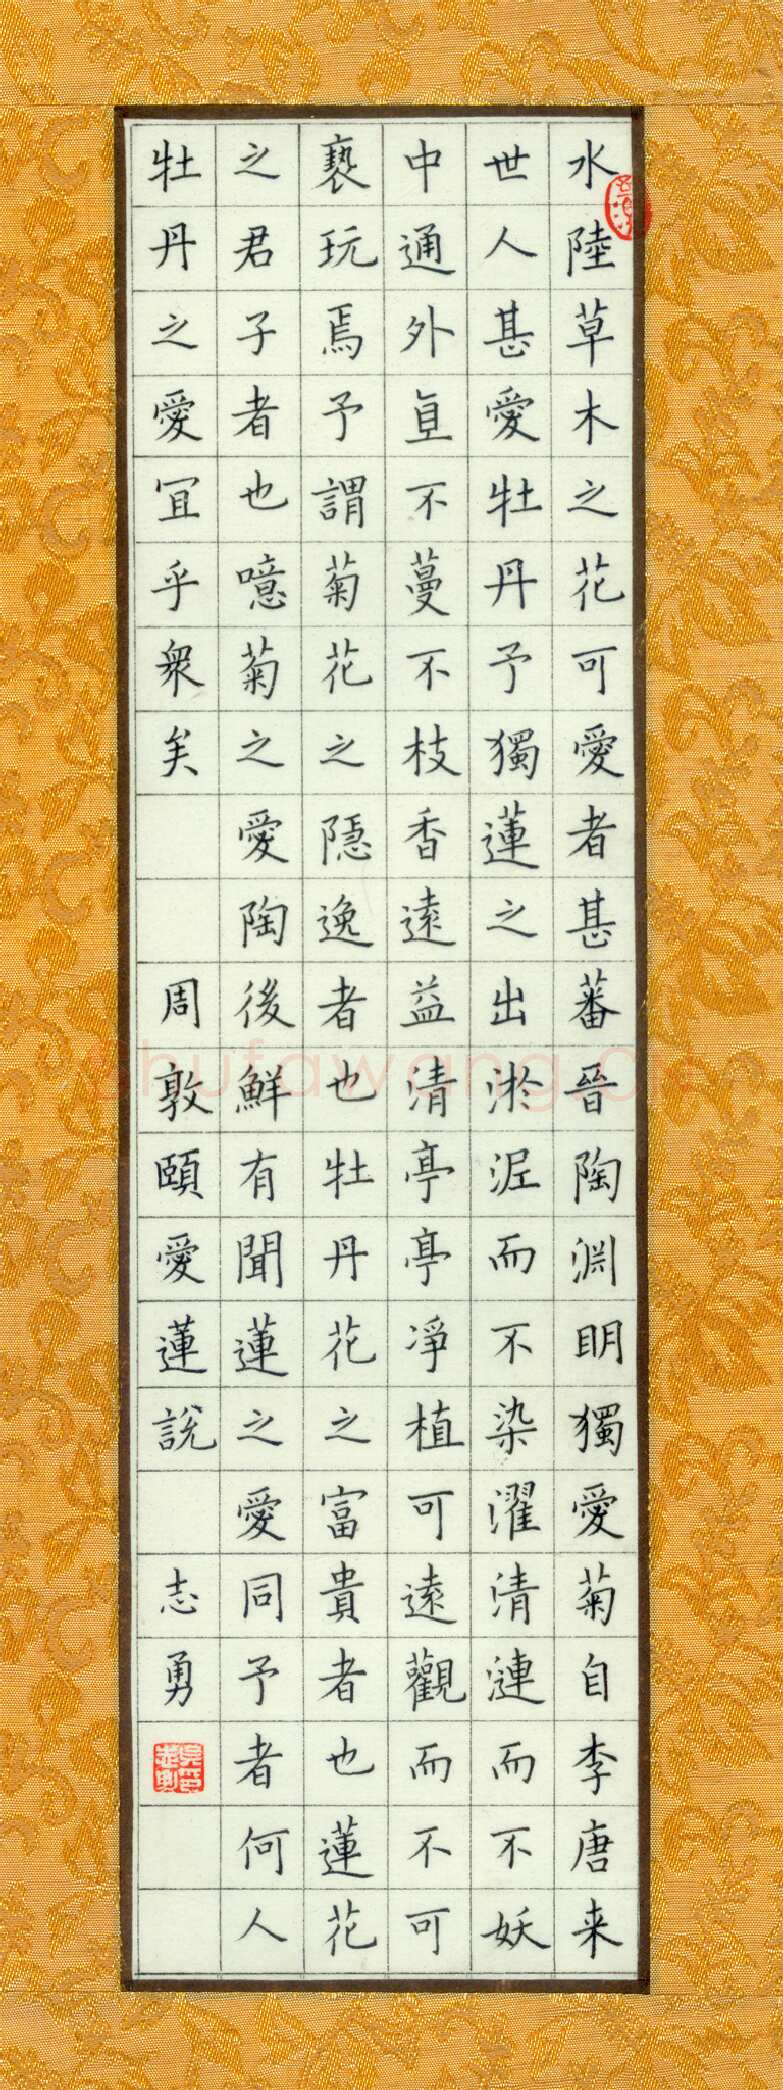 水陸草木之花可愛者甚蕃晉陶淵明獨愛菊自李唐来
世人甚愛牡丹予獨蓮之出淤泥而不染濯清漣而不妖
中通外直不蔓不枝香遠益清亭亭凈植可遠觀而不可
褻玩焉予謂菊花之隱逸者也牡丹花之富貴者也蓮花
之君子者也噫菊之愛陶後鮮有聞蓮之愛同予者何人
牡丹之愛宜乎衆矣 周敦頤愛蓮說 志勇
Shufawang.cn